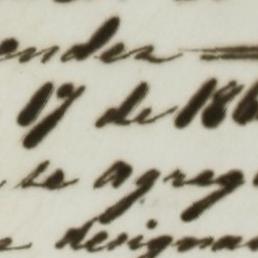 ender
17 de 186
se agreg
designa